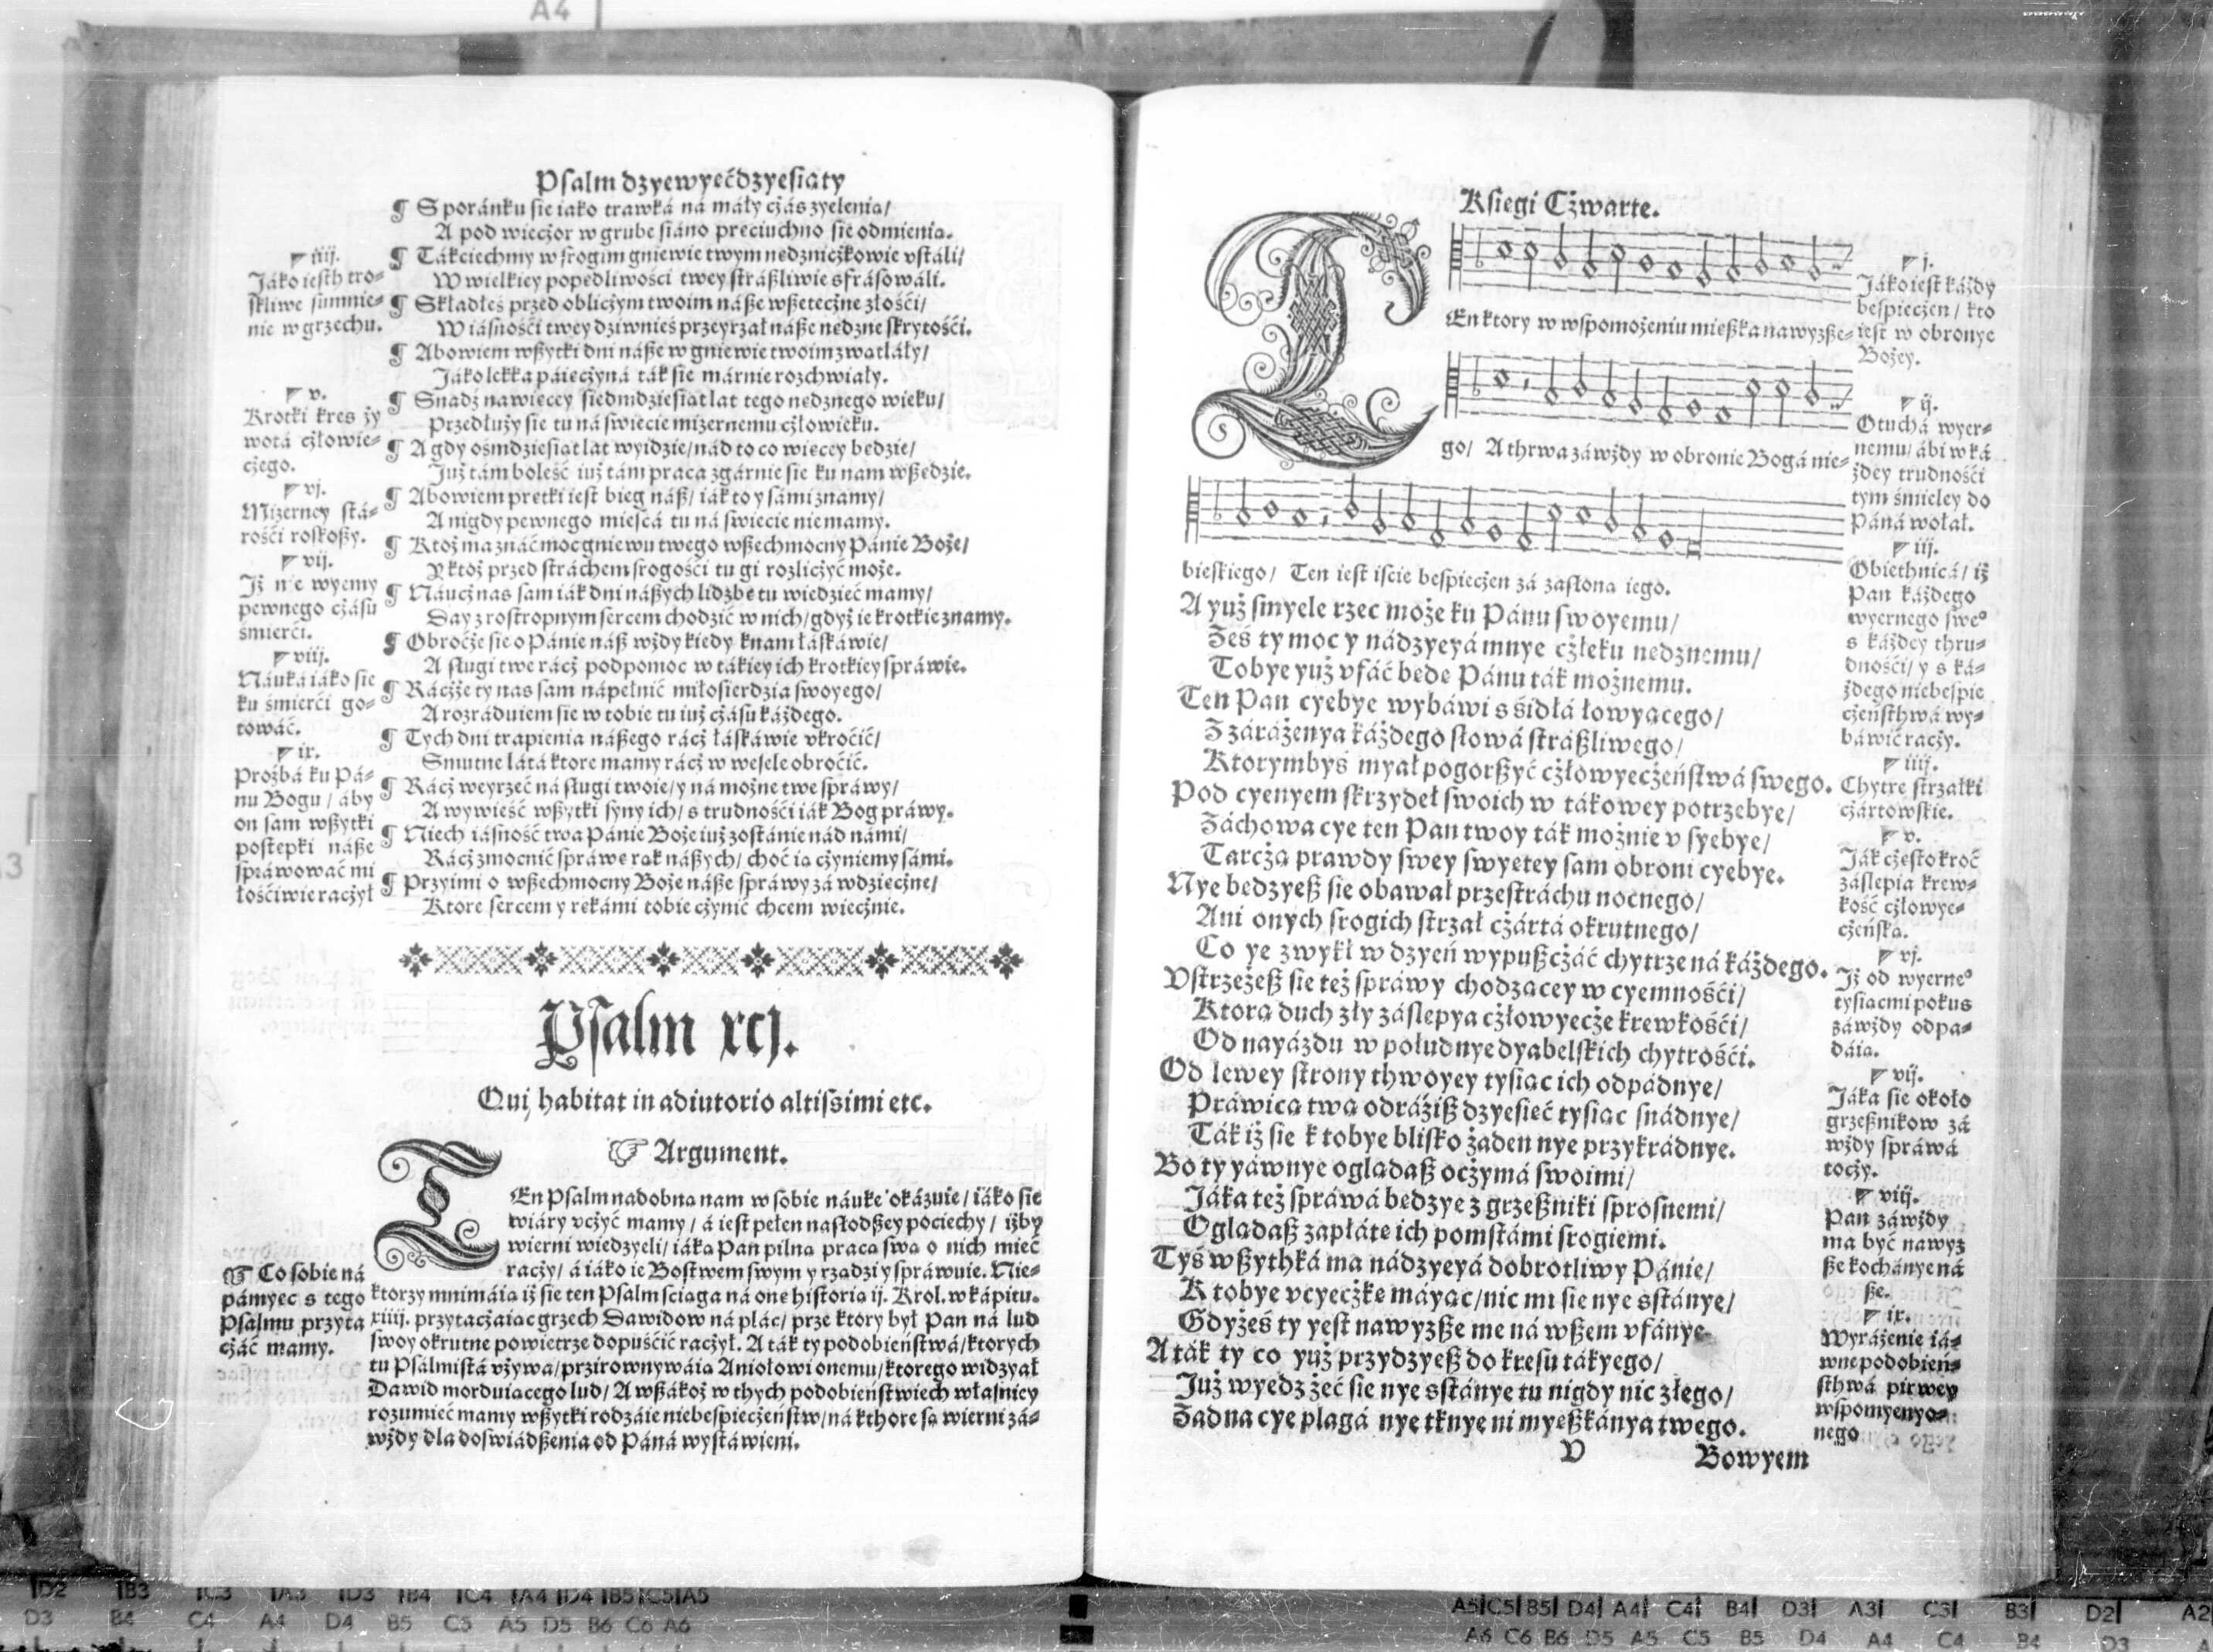 Psalm dzyewyećdzyesiąty
¶ S poránku sie iáko trawká ná máły cżás zyelenia/
A pod wiecżor w grube siáno preciuchno sie odmienia.
¶ Tákciechmy w srogim gniewie twym nędznicżkowie vstáli/
W wielkiey popędliwości twey strászliwie sfrásowáli.
¶ Skłádłeś przed oblicżym twoim násze wszetecżne złości/
W iásności twey dziwnieś przeyrzał násze nędzne skrytości.
¶ Abowiem wszytki dni násze w gniewie twoim zwątláły/
Jáko lekka páięcżyná ták sie márnie rozchwiały.
¶ Snadź nawięcey siedmdziesiąt lat tego nędznego wieku/
Przedłuży sie tu ná świecie mizernemu cżłowieku.
¶ A gdy ośmdziesiąt lat wyidzie/ nád to co więcey będzie/
Już tám boleść iuż tám praca zgárnie sie ku nam wszędzie.
¶ Abowiem prętki iest bieg nász/ iák to y sámi znamy/
A nigdy pewnego mieścá tu ná świecie nie mamy.
¶ Ktoż ma znáć moc gniewu twego wszechmocny Pánie Boże/
Y ktoż przed stráchem srogości tu gi rozlicżyć może.
¶ Náucż nas sam iák dni nászych lidzbę tu wiedzieć mamy/
Day z rostropnym sercem chodzić w nich/ gdyż ie krotkie znamy.
¶ Obroćże sie o Pánie nász wżdy kiedy k nam łáskáwie/
A sługi twe rácż podpomoc w tákiey ich krotkiey spráwie.
¶ Rácżże ty nas sam nápełnić miłosierdzia swoyego/
A rozráduiem sie w tobie tu iuż cżásu káżdego.
¶ Tych dni trapienia nászego rácż łáskáwie vkroćić/
Smutne látá ktore mamy rácż w wesele obroćić.
¶ Rácż weyrzeć ná sługi twoie/ y ná możne twe spráwy/
A wywieść wszytki syny ich/ s trudności iák Bog práwy.
¶ Niech iásność twa Pánie Boże iuż zostánie nád námi/
Rácż zmocnić spráwę rąk nászych/ choć ią cżyniemy sámi.
¶ Przyimi o wszechmocny Boże násze spráwy zá wdzięcżne/
Ktore sercem y rękámi tobie cżynić chcem wiecżnie.
iiij.
Jáko iesth tro-
skliwe sumnie-
nie w grzechu.
v.
Krotki kres ży
wotá cżłowie-
cżego.
vj.
Mizerney stá-
rości roskoszy.
vij.
Jż nie wyemy
pewnego cżásu
śmierći.
viij.
Náuká iáko sie
ku śmierći go-
towáć.
ix.
Proźbá ku Pá-
nu Bogu/ áby
on sam wszytki
postępki násze
spráwowáć mi
łościwie racżył
Psalm xcj.
Qui habitat in adiutorio altissimi etc.
Argument.
TEn Psalm nadobną nam w sobie náukę okázuie/ iáko sie
wiáry vcżyć mamy/ á iest pełen nasłodszey pociechy/ iżby
wierni wiedzyeli/ iáką Pan pilną pracą swą o nich mieć
racży/ á iáko ie Bostwem swym y rządzi y spráwuie. Nie-
ktorzy mnimáią iż sie ten Psalm sciąga ná onę historią ij. Krol. w kápitu.
xiiij. przytacżáiąc grzech Dawidow ná płác/ prze ktory był Pan ná lud
swoy okrutne powietrze dopuścić racżył. A ták ty podobieństwá/ ktorych
tu Psálmistá vżywa/ przirownywáią Aniołowi onemu/ ktorego widzyał
Dawid morduiącego lud/ A wszákoż w thych podobieństwiech właśniey
rozumieć mamy wszytki rodzáie niebespiecżeństw/ ná kthore są wierni zá-
wżdy dla doświádszenia od Páná wystáwieni.
Co sobie ná
pámyęc s tego
Psalmu przyta
cżáć mamy.
Księgi Cżwarte.
TEn ktory w wspomożeniu mieszka nawyzsze-
go/ A thrwa záwżdy w obronie Bogá nie-
bieskiego/ Ten iest iście bespiecżen zá zasłoną iego.
A yuż smyele rzec może ku Pánu swoyemu/
Żeś ty moc y nádzyeyá mnye cżłeku nędznemu/
Tobye yuż vfáć będę Pánu ták możnemu.
Ten Pan cyebye wybáwi s śidłá łowyącego/
Z záráżenya káżdego słowá strászliwego/
Ktorymbyś myał pogorszyć cżłowyecżeństwá swego.
Pod cyenyem skrzydeł swoich w tákowey potrzebye/
Záchowa cye ten Pan twoy ták możnie v syebye/
Tarcżą prawdy swey swyętey sam obroni cyebye.
Nye będzyesz sie obawał przestráchu nocnego/
Ani onych srogich strzał cżártá okrutnego/
Co ye zwykł w dzyeń wypuszcżáć chytrze ná káżdego.
Vstrzeżesz sie też spráwy chodzącey w cyemności/
Ktorą duch zły záslepya cżłowyecże krewkości/
Od nayázdu w południe dyabelskich chytrości.
Od lewey strony thwoyey tysiąc ich odpádnye/
Práwicą twą odráżisz dzyesięć tysiąc snádnye/
Ták iż sie k tobye blisko żaden nye przykrádnye.
Bo ty yáwnye oglądasz ocżymá swoimi/
Jáka też spráwá będzye z grzeszniki sprosnemi/
Oglądasz zapłátę ich pomstámi srogiemi.
Tyś wszythká ma nádzyeyá dobrotliwy Pánie/
K tobye vcyecżkę máyąc/ nic mi sie nye sstánye/
Gdyżeś ty yest nawyzsze me ná wszem vfánye
A ták ty co yuż przydzyesz do kresu tákyego/
Już wyedz żeć sie nye sstánye tu nigdy nic złego/
Żadna cye plagá nye tknye ni myeszkánya twego.
V
Bowyem
j.
Jáko iest káżdy
bespiecżen/ kto
iest w obronye
Bożey.
ij.
Otuchá wyer-
nemu/ ábi w ká
żdey trudności
tym śmieley do
Páná wołał.
iij.
Obiethnicá/ iż
Pan káżdego
wyernego swe°
s káżdey thru-
dności/ y s ká-
żdego niebespie
cżeństhwá wy-
báwić racży.
iiij.
Chytre strzałki
cżártowskie.
v.
Ják cżęstokroć
záslepia krew-
kość cżłowye-
cżeńska.
vj.
Jż od wyerne°
tysiącmi pokus
záwżdy odpa-
dáią.
vij.
Jáka sie około
grzesznikow zá
wżdy spráwá
tocży.
viij.
Pan záwżdy
ma być nawyz
sze kochánye ná
sze.
ix.
Wyráżenie iá-
wne podobień-
sthwá pirwey
wspomyenyo-
nego